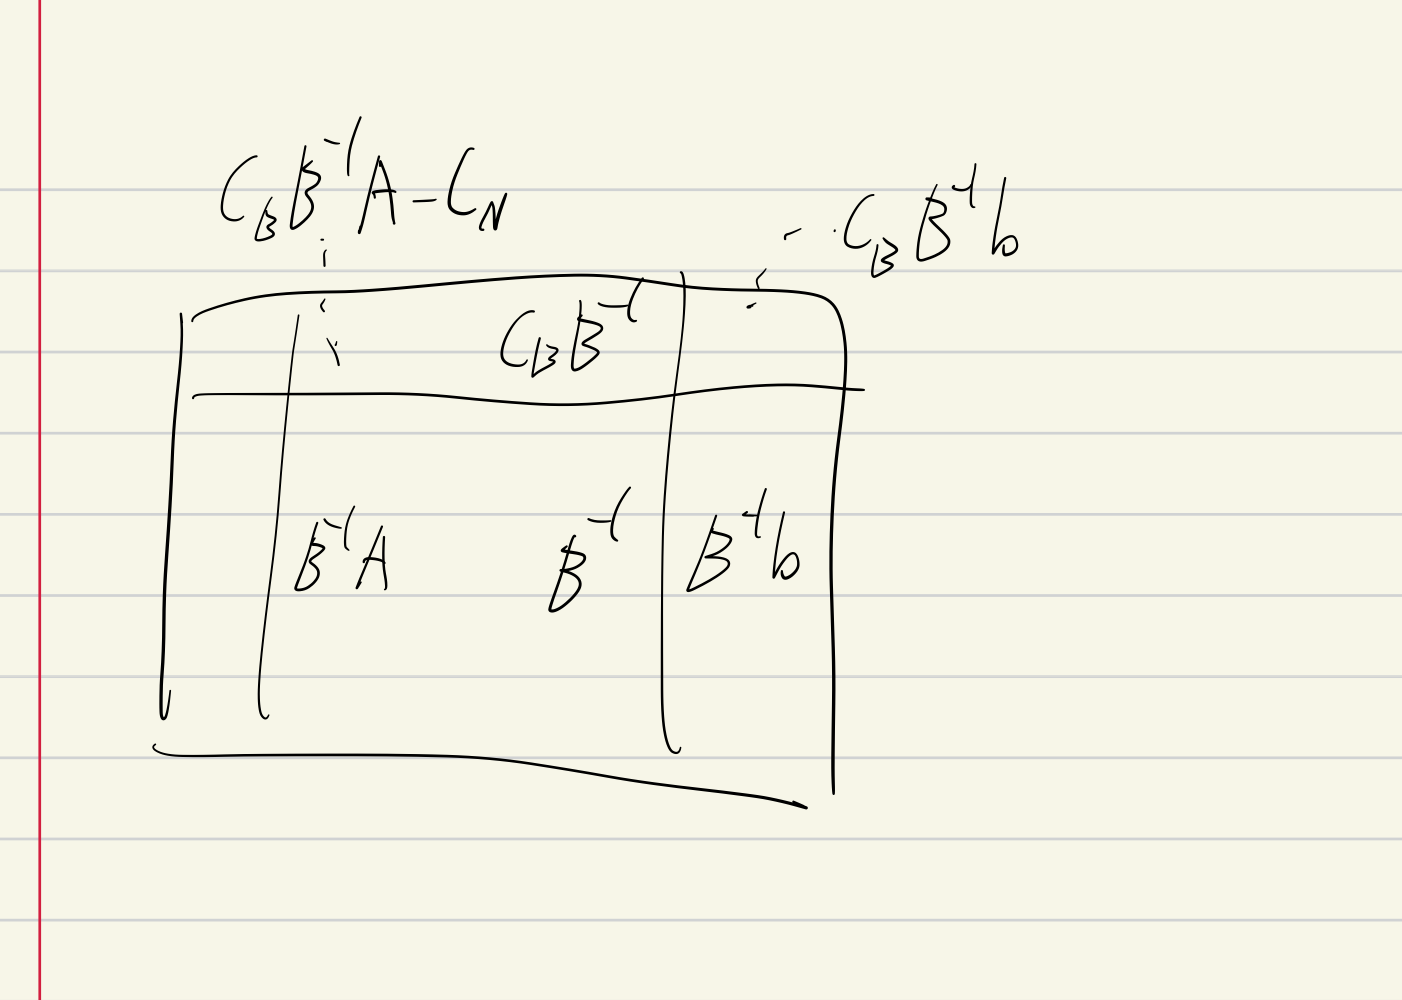 C_B B^{-1} A - C_N
C_B B^{-1} b
C_B B^{-1}
B^{-1} A B^{-1} B^{-1} b